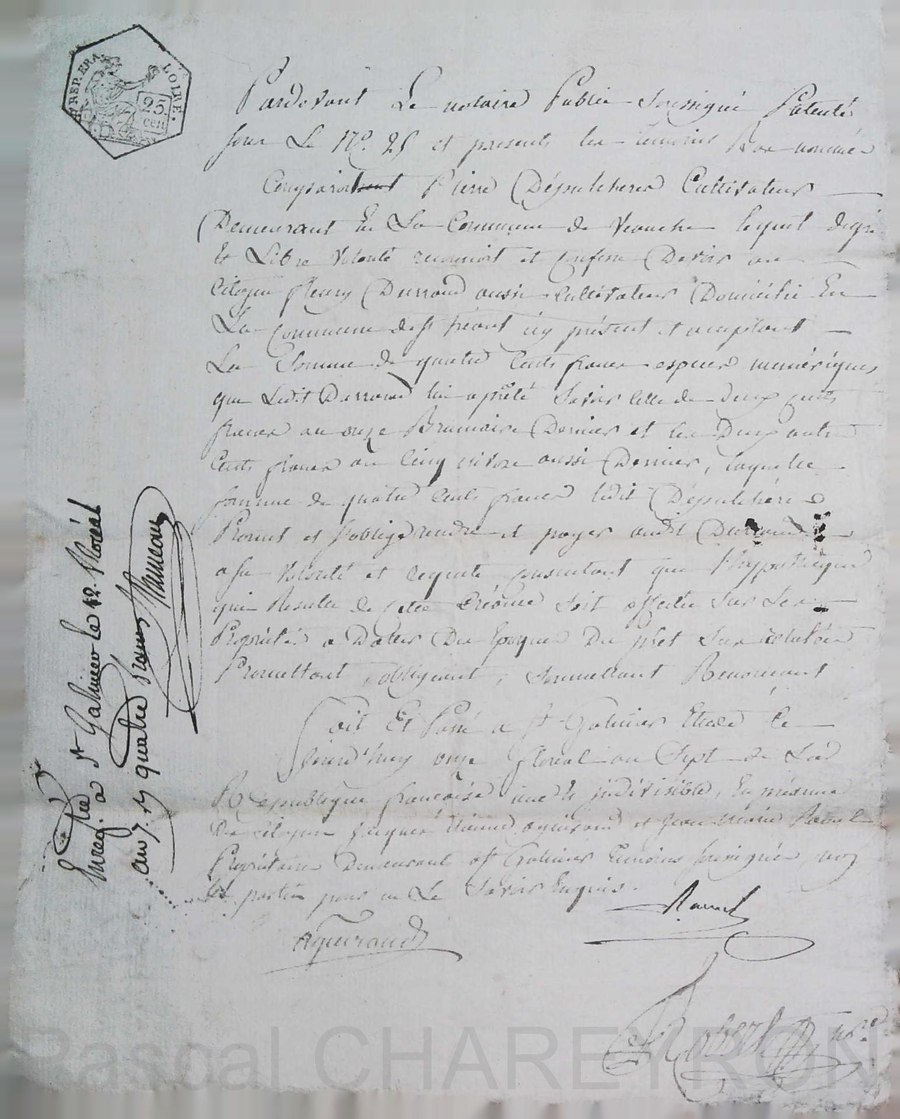 RÉP. FRA.
LOIRE.
25
cen
Pardevant Le notaire Public Soussigné Patenté
sous Le N.o 25 et présents les temoins Bas nommés
Comparait Pierre Dépulchere Cultivateur
Demeurant En La Commune de Veauche lequel de gré
et Libre Volonté reconnoit et Confesse Devoir au
Citoyen fleury Durrand aussi Cultivateur Domicilié En
La Commune de St ici présent et acceptant
La Somme de quatre Cents francs especes numériques
que Ledit Durrand lui a prété Savoir Celle de Deux Cents
francs au onze Brumaire Dernier et les Deux autre
Cents francs au Cinq nivose aussi Dernier, laquelle
somme de quatre Cents francs ledit Dépulchere
Promet et s'oblige rendre et payer audit Durrand
a Sa Volonté et requete consentant que l'hypothèque
qui Resulte de Cette Créance Soit affectée Sur Ses
Propriétés a Dater Du Epoques Du prêt
Promettant, obligeant, Soumettant Renonçant
Fait Et Passé a St Galmier Etude Ce
jourd'huy onze floréal an Sept de La
République française une et indivisible, En présence
De citoyen Jacques Etienne aguiraud et Jean Marie Ravel
Propriétaire Demeurant a St Galmier temoins Soussignés, non
les parties pour ne Le Savoir Enquis.
Ravel
Aguiraud
Robert Nre
Enregistrée a St Galmier le 12 floréal
an 7. Rx quatre francs
Pascal CHAREYRON